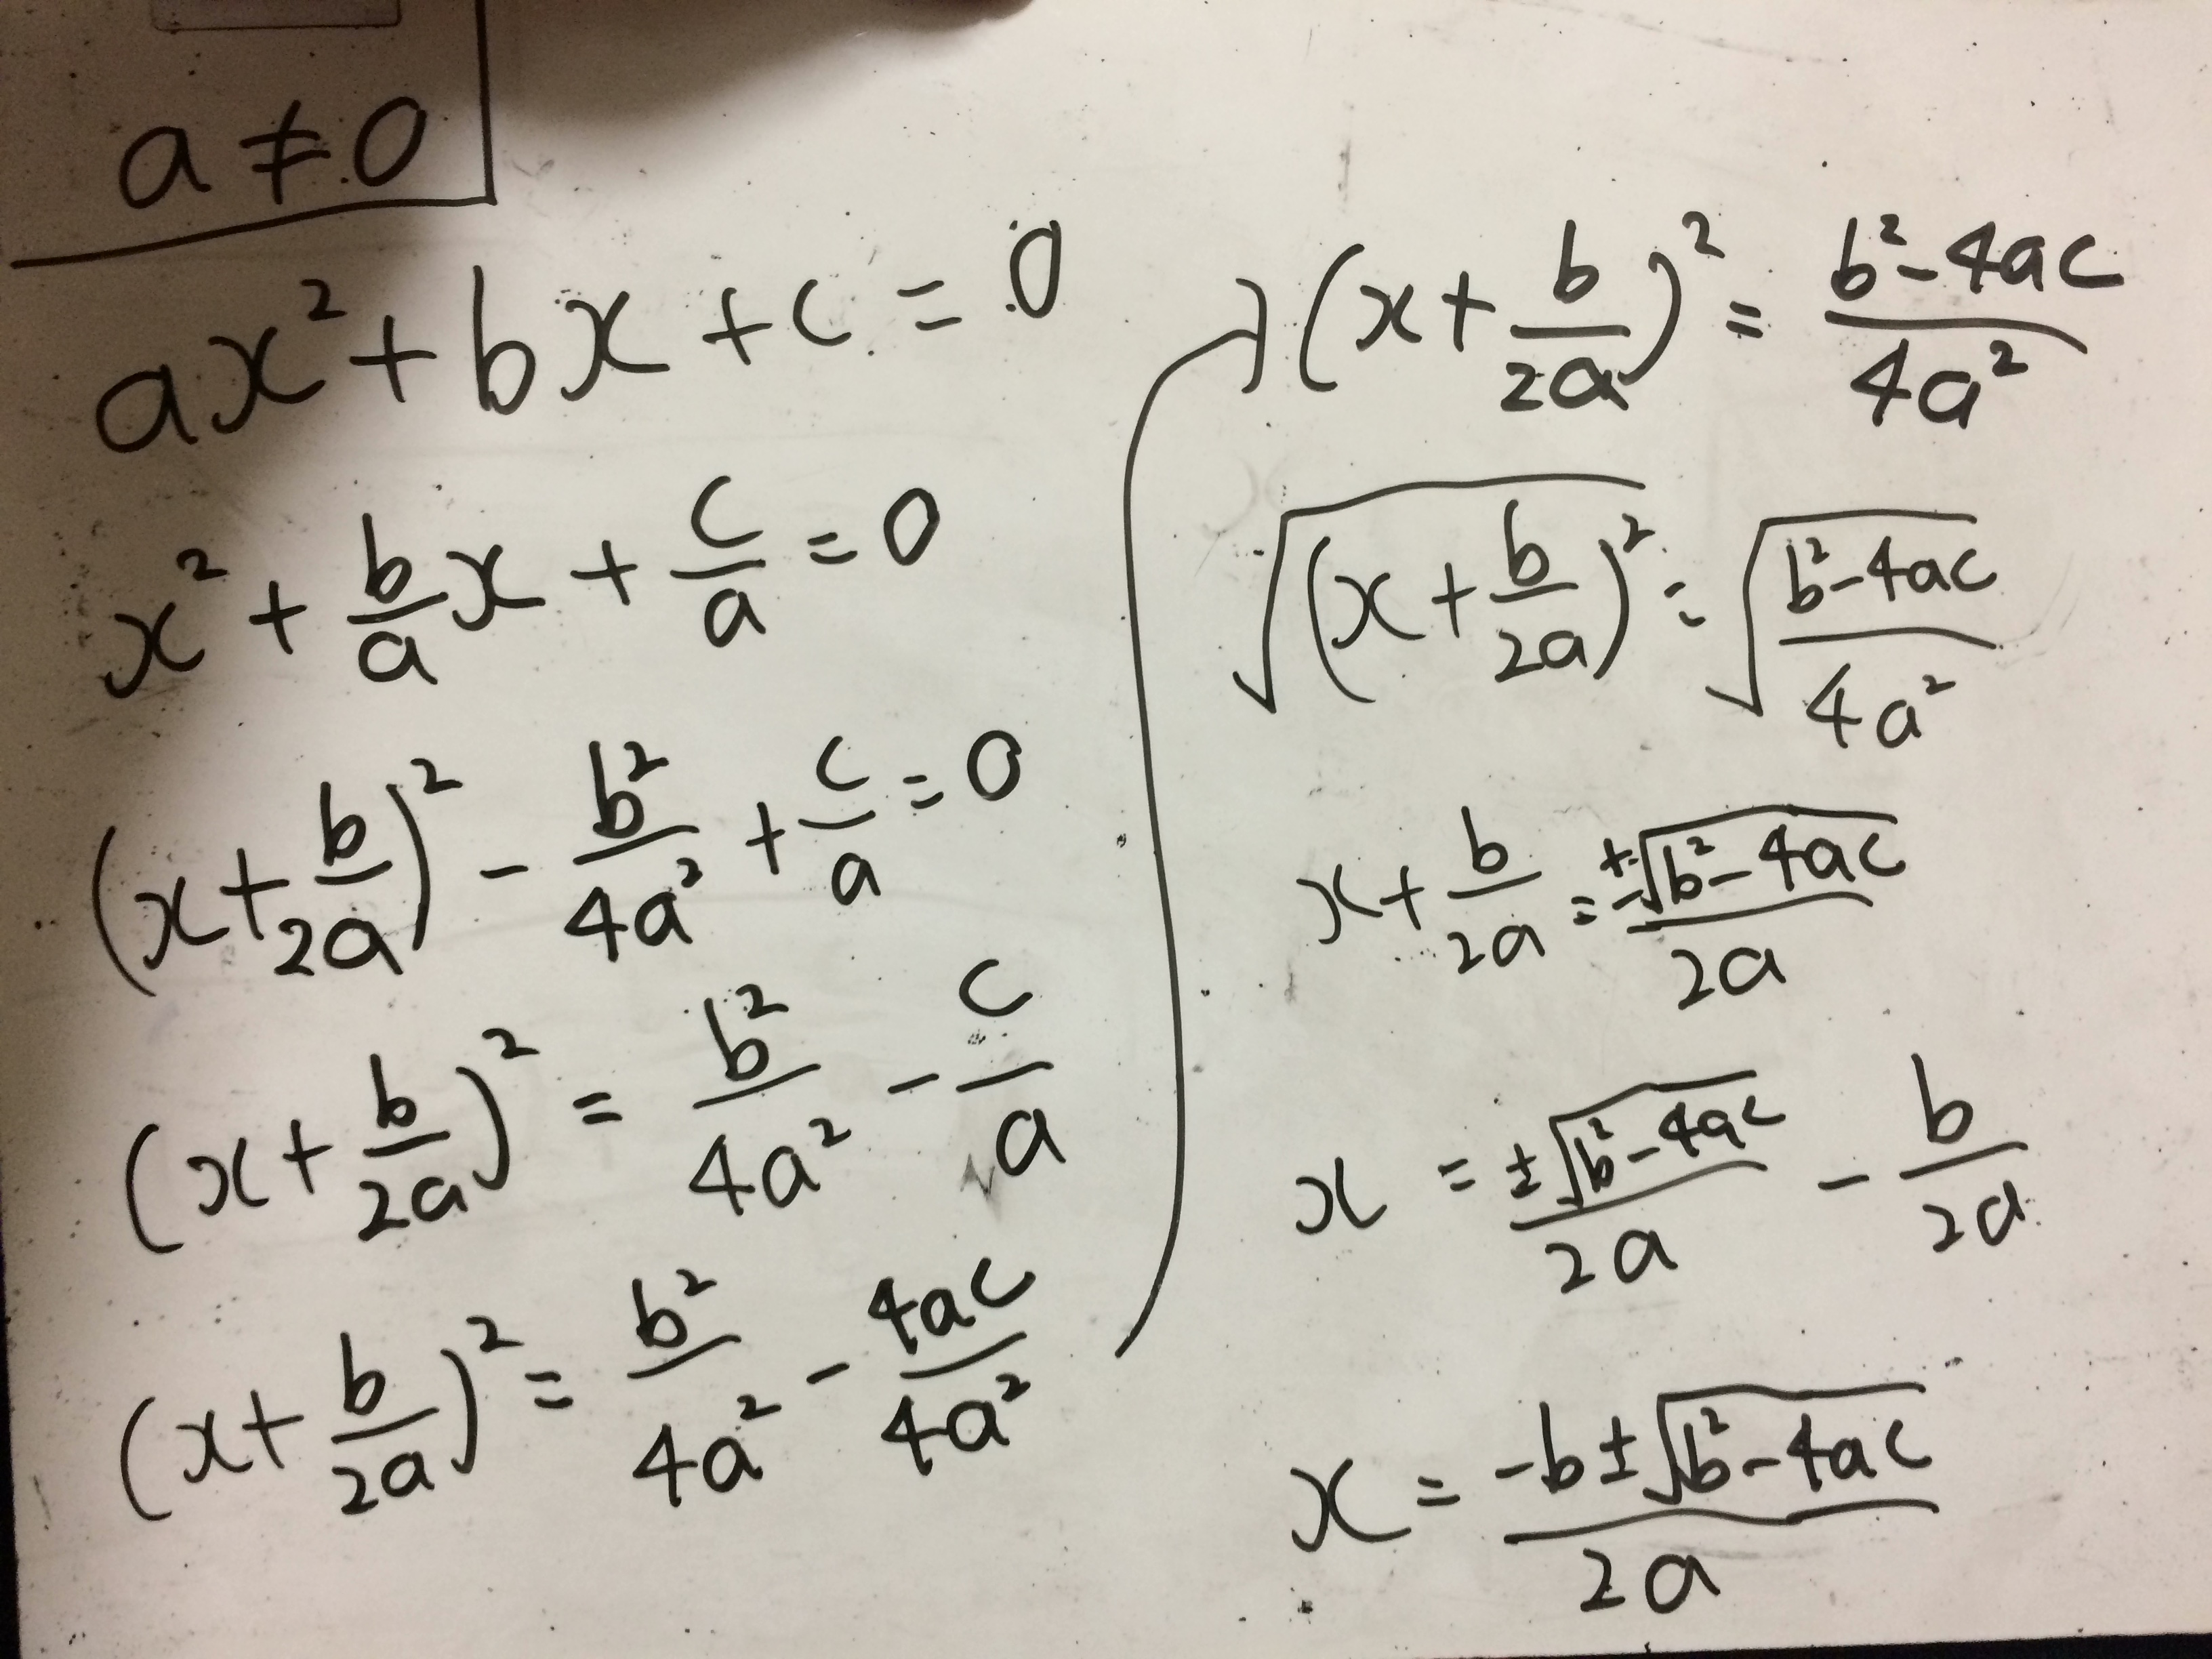 a ≠ 0
ax² + bx + c = 0
x² + b/a x + c/a = 0
(x + b/2a)² - b²/4a² + c/a = 0
(x + b/2a)² = b²/4a² - c/a
(x + b/2a)² = b²/4a² - 4ac/4a²
(x + b/2a)² = b²-4ac/4a²
√(x + b/2a)² = √b²-4ac/4a²
x + b/2a = ±√b²-4ac/2a
x = ±√b²-4ac/2a - b/2a
x = -b±√b²-4ac/2a